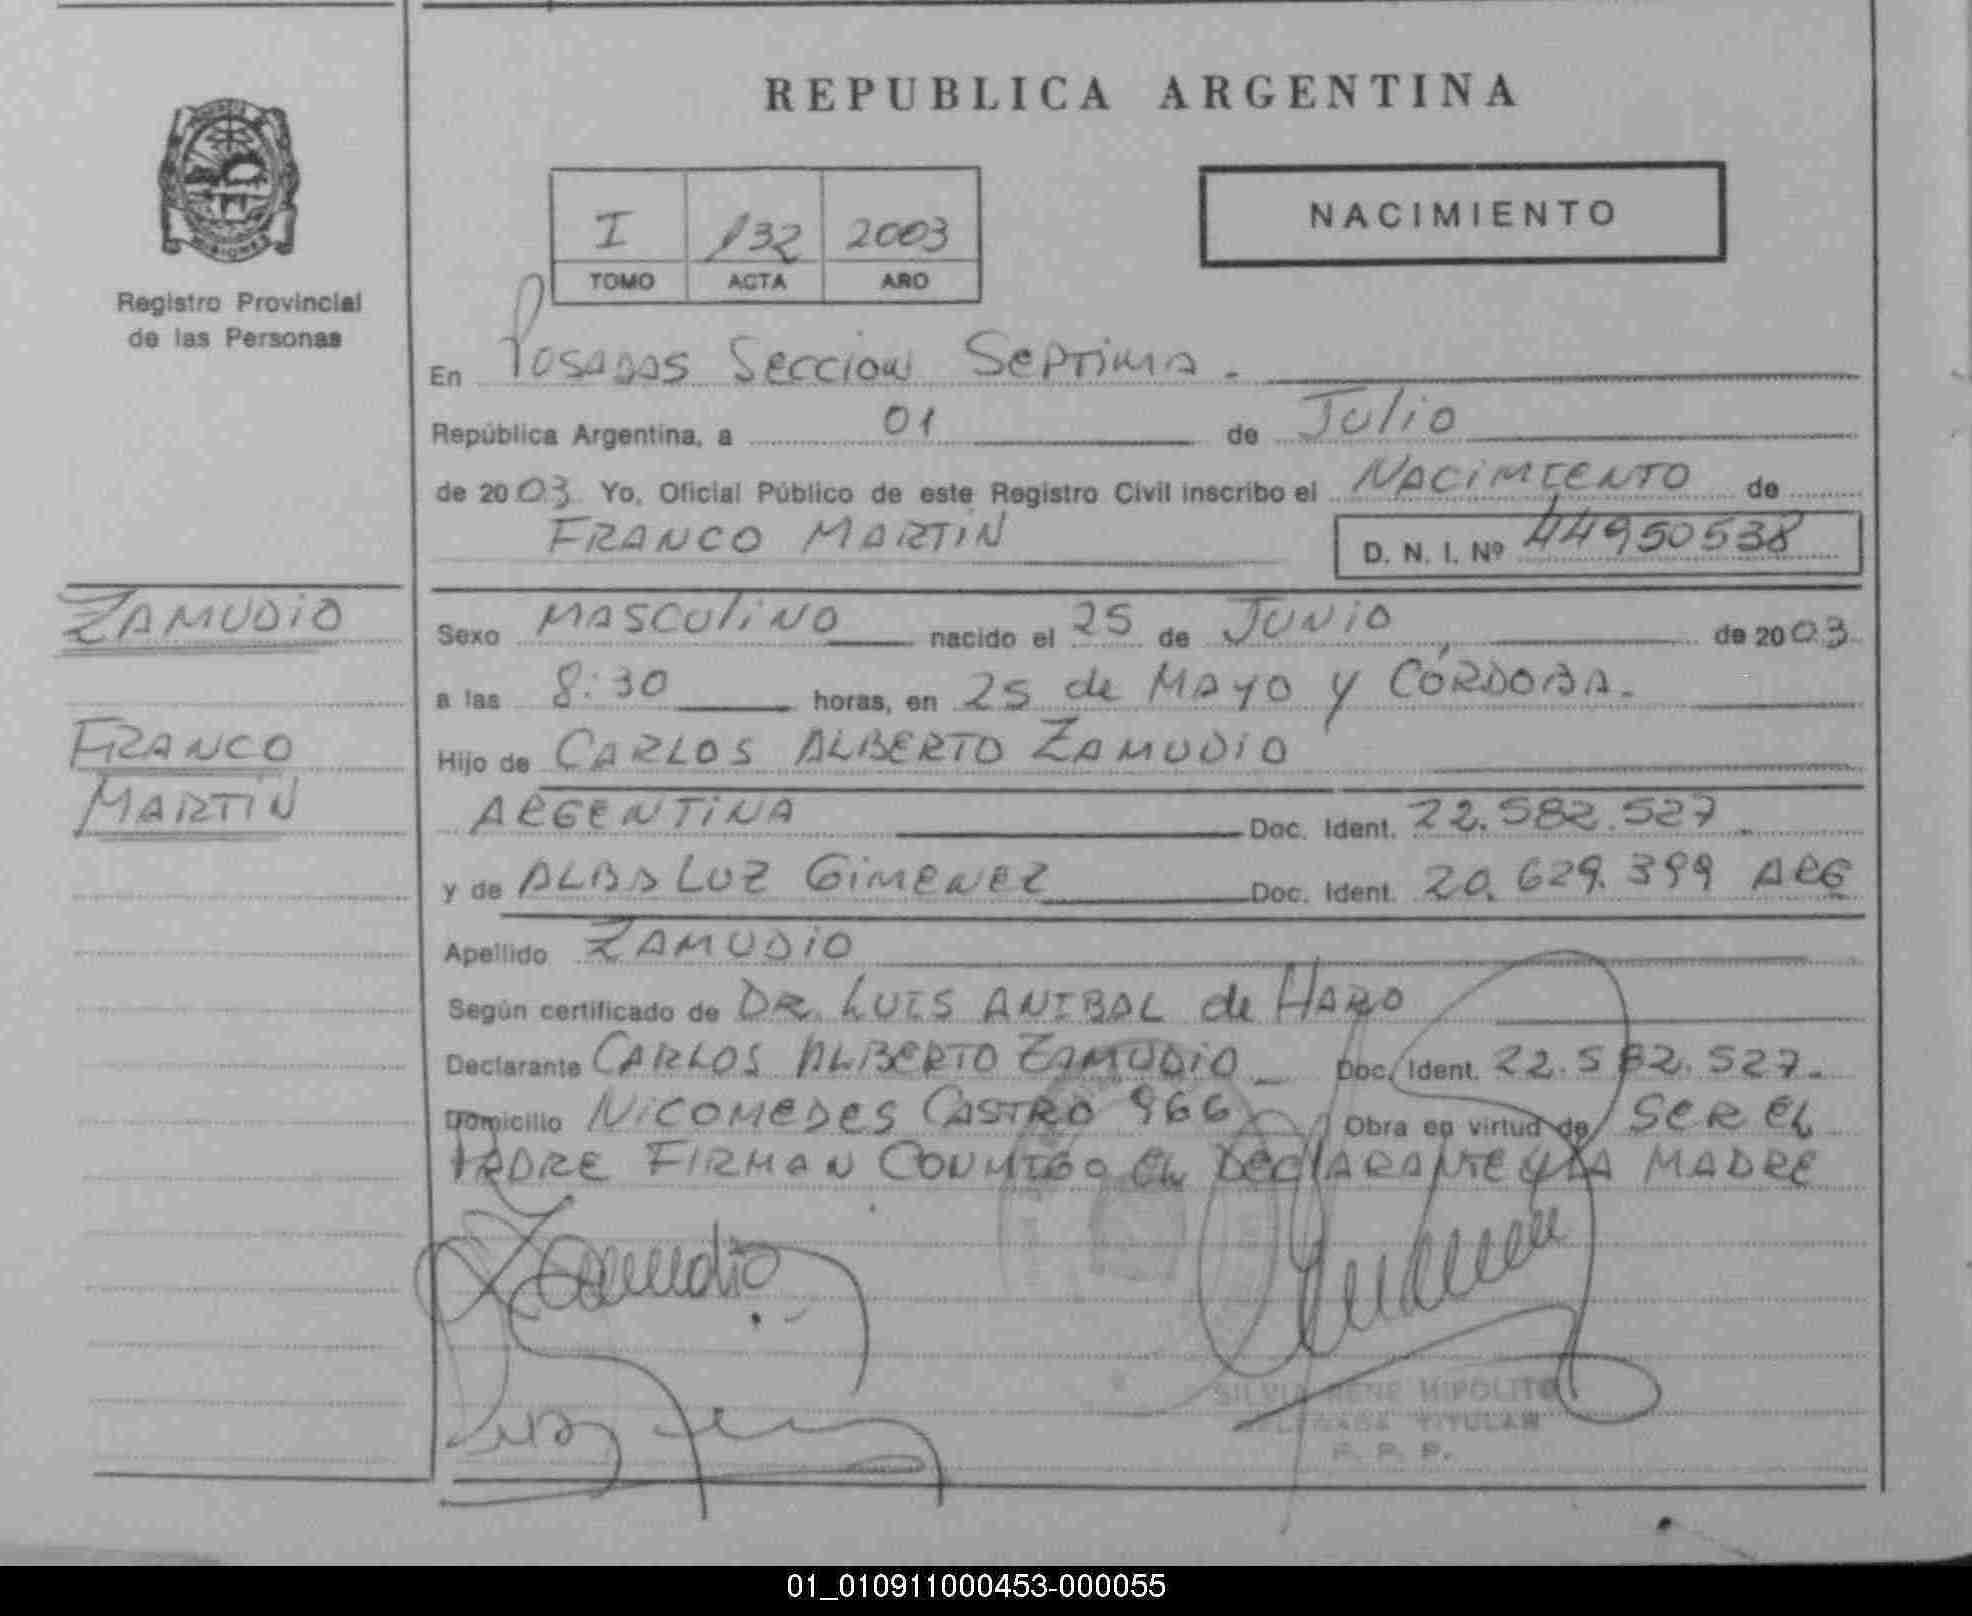 REPUBLICA ARGENTINA
MISIONES
Registro Provincial
de las Personas
I 132 2003
TOMO ACTA AÑO
NACIMIENTO
En Posadas Seccion Septima.
República Argentina, a 01 de Julio
de 2003 Yo, Oficial Público de este Registro Civil inscribo el NACIMIENTO de
FRANCO MARTIN D. N. I. Nº 44950538
ZAMUDIO
FRANCO
MARTIN
Sexo MASCULINO nacido el 25 de JUNIO de 2003
a las 8:30 horas, en 25 de MAYO y CÓRDOBA.
Hijo de CARLOS ALBERTO ZAMUDIO
ARGENTINA Doc. Ident. 22.582.527
y de ALBA LUZ GIMENEZ Doc. Ident. 20.629.399 ARG
Apellido ZAMUDIO
Según certificado de DR. LUIS ANIBAL de HARO
Declarante CARLOS ALBERTO ZAMUDIO Doc. Ident. 22.582.527.
Domicilio NICOMEDES CASTRO 966 Obra en virtud de SER EL
PADRE FIRMAN CONMIGO EL DECLARANTE Y LA MADRE
Zamudio
SILVIA RENE HIPOLITO
DELEGADA TITULAR
R. P. P.
01_010911000453-000055